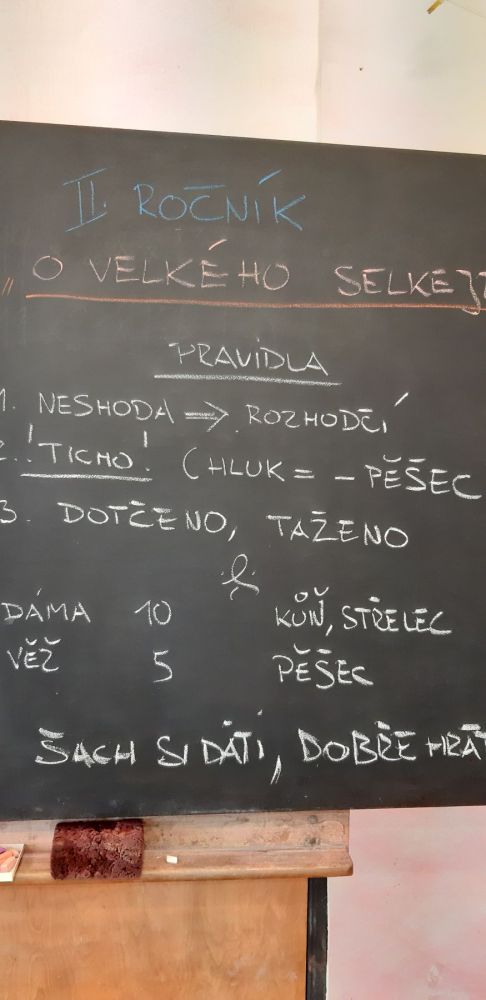 II. ROČNÍK
„O VELKÉHO SELKE
PRAVIDLA
1. NESHODA => ROZHODČÍ
2. !TICHO! (HLUK = - PĚŠEC
3. DOTČENO, TAŽENO
DÁMA 10 KŮŇ, STŘELEC
VĚŽ 5 PĚŠEC
ŠACH SI DÁTI, DOBŘE HRÁT